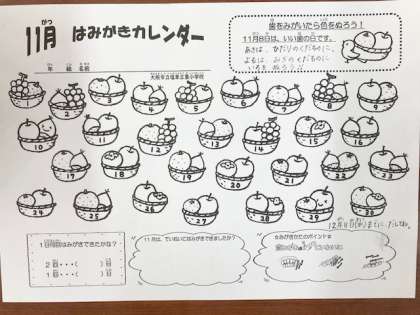 11月 はみがきカレンダー
がつ
年 組 名前
大阪市立塩草立葉小学校
歯をみがいたら色をぬろう!
11月8日は、いい歯の日です。
あさは、ひだりのくだものに
よるは、みぎのくだものに
いろをぬろう
1 2 3 4 5 6 7 8 9
10 11 12 13 14 15 16
17 18 19 20 21 22 23
24 25 26 27 28 29 30
12月 日( )までに、だしてね。
1日何回はみがきできたかな?
1回・・・( )日
2回・・・( )日
11月は、ていねいにはみがきできましたか?
はみがきのポイント